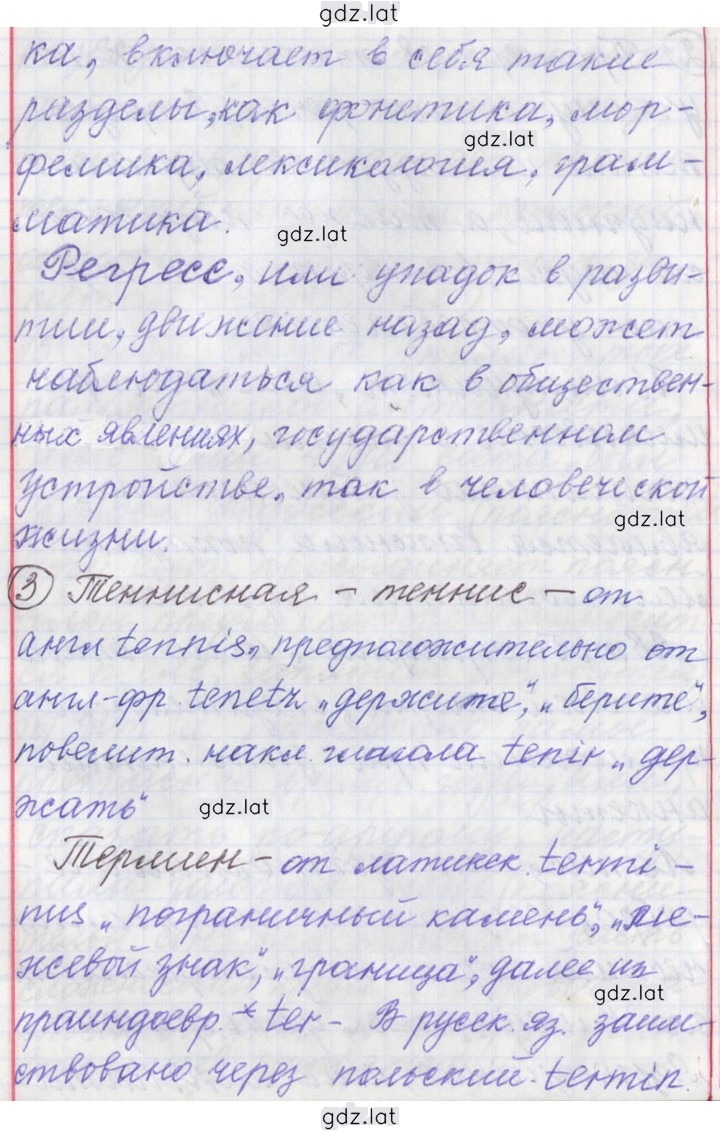 gdz.lat
ка, включает в себя такие
разделы, как фонетика, мор-
gdz.lat
фемика, лексикология, грам-
матика.
gdz.lat
Регресс, или упадок в разви-
тии, движение назад, может
наблюдаться как в обществен-
ных явлениях, государственном
устройстве, так в человеческой
gdz.lat
жизни.
3 Теннисная – теннис – от
англ tennis, предположительно от
англ-фр. tenetz „держите“, „берите“,
повелит. накл. глагола tenir „дер-
жать“
gdz.lat
Термин – от латинск. termi-
nus „пограничный камень“, „ме-
жевой знак“, „граница“, далее из
gdz.lat
праиндоевр. *ter- В русск. яз. заим-
ствовано через польский. termin.
gdz.lat